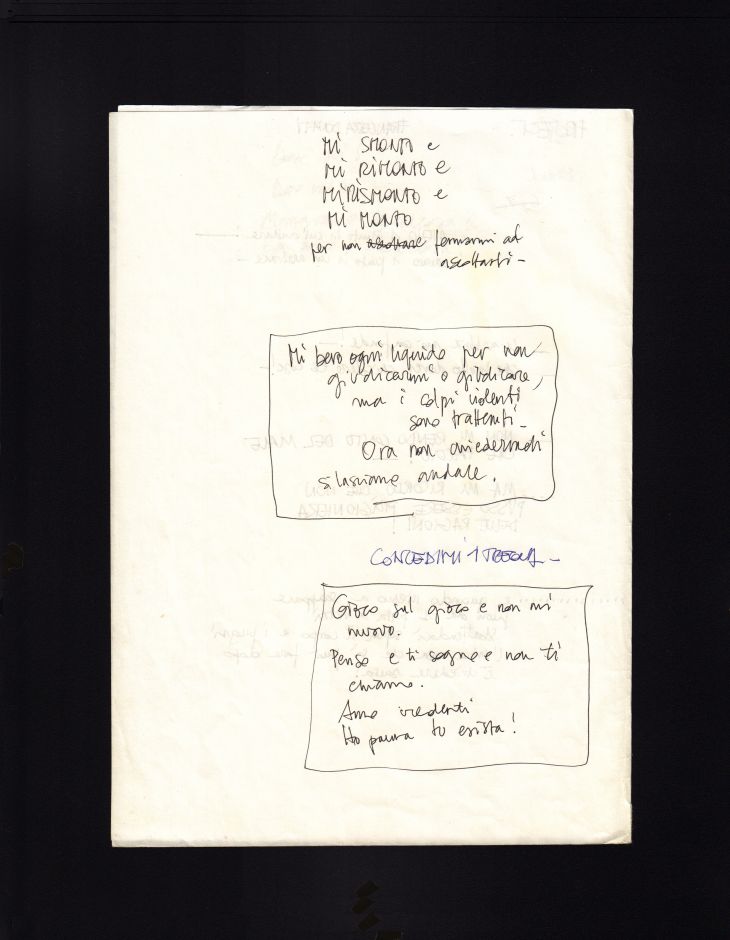 MI SMONTO e
MI RIMONTO e
MI RISMONTO e
MI MONTO
per non ascoltare fermarmi ad
ascoltarti -
Mi bevo ogni liquido per non
giudicarmi o giudicare,
ma i colpi violenti
sono trattenuti -
Ora non chiedermi di
lasciarmi andare.
CONCEDIMI 1 TREGUA -
Gioco sul gioco e non mi
muovo.
Penso e ti sogno e non ti
chiamo.
Amo vederti
Ho paura tu esista!